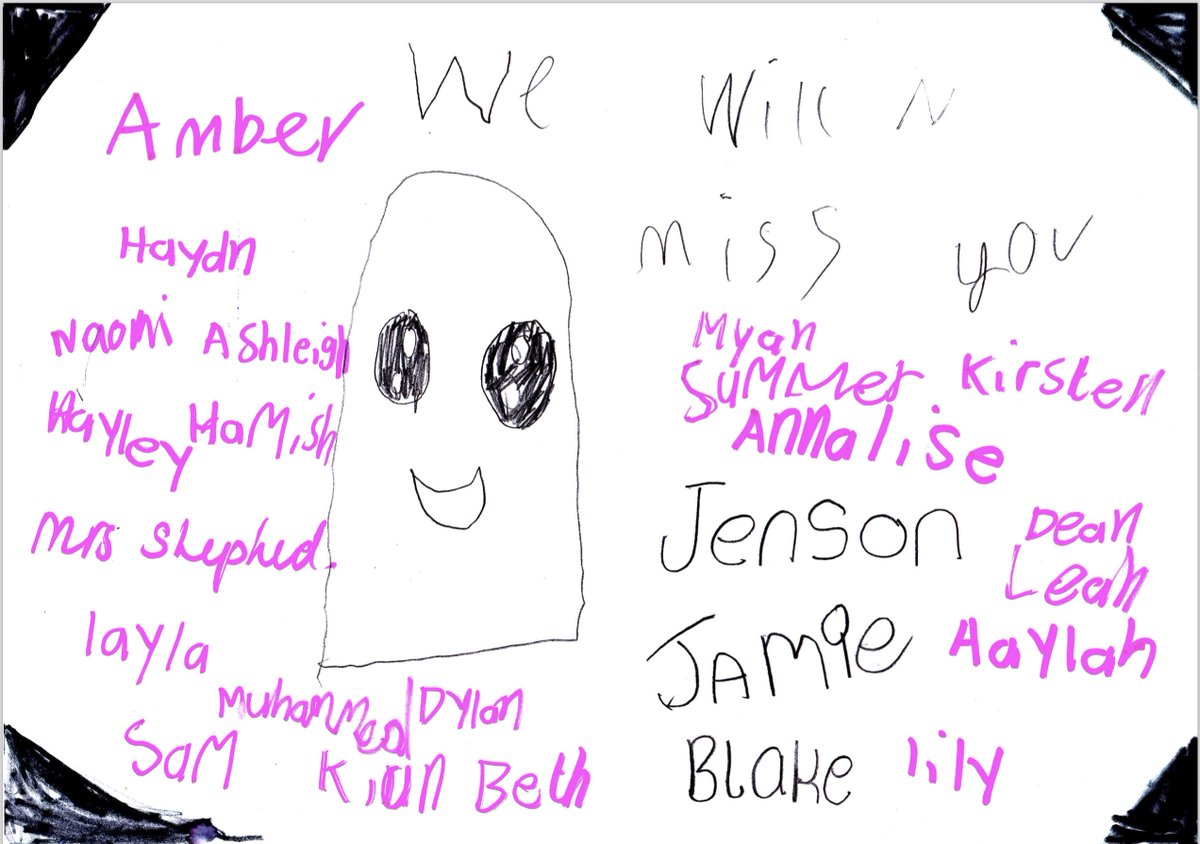 We Will N
miss you
Amber
Haydn
Naomi Ashleigh
Hayley Hamish
Mrs Shepherd.
layla
Muhammed Dylan
Sam Kian Beth
Myah
Summer Kirsten
Annalise
Jenson Dean
Leah
Jamie Aaylah
Blake lily